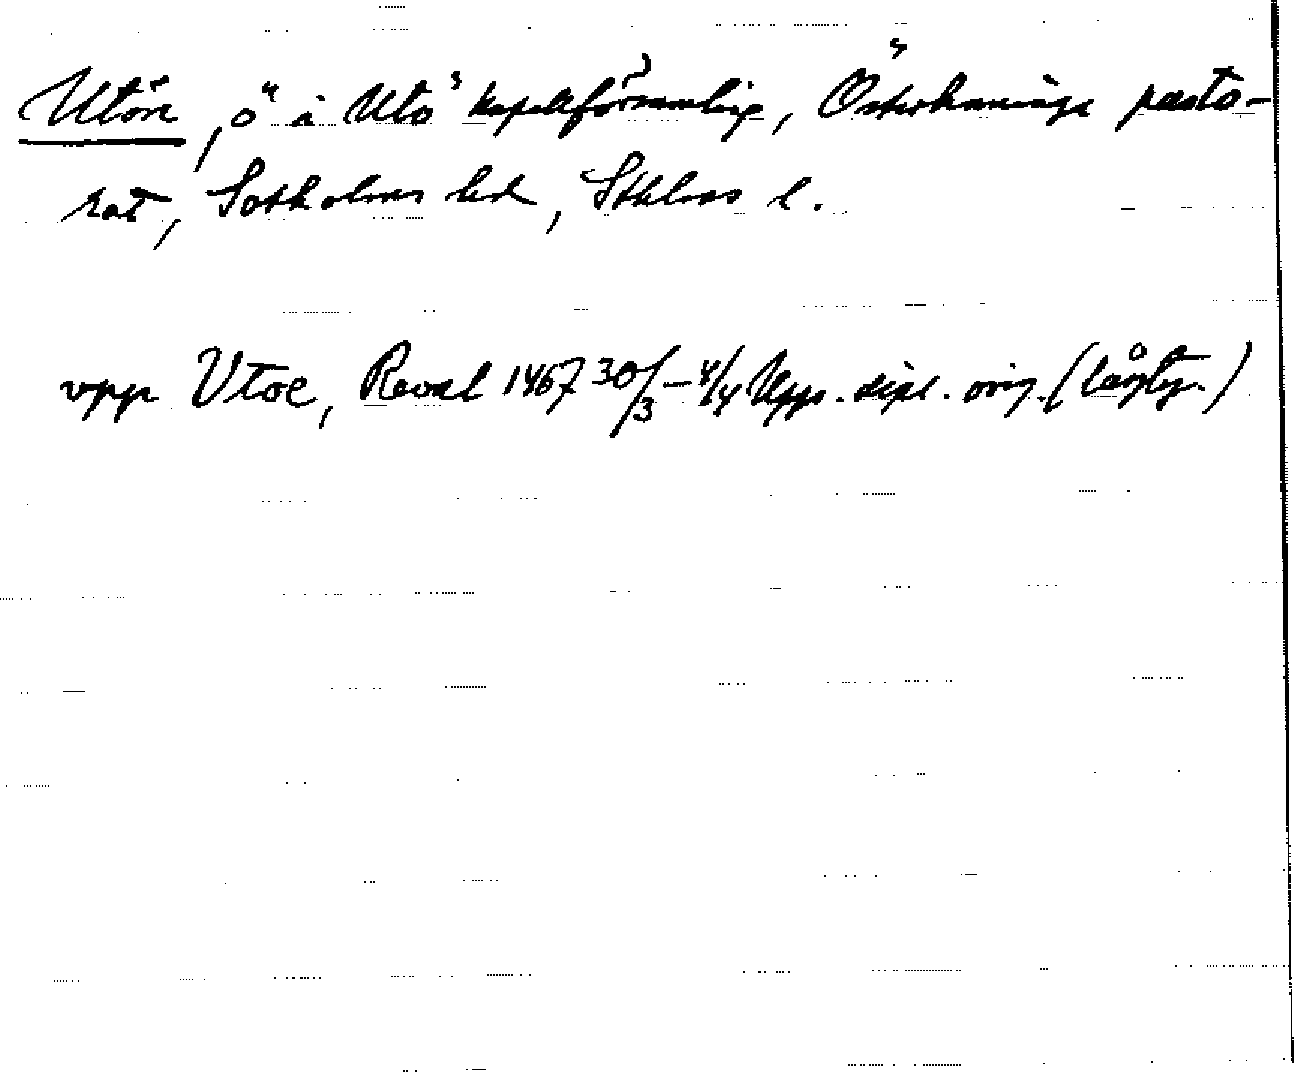 Utön, ö i Utö kapellförsamling, Österhaninge pasto-
rat, Sotholms hd, Sthlms l.
vpp Vtoe, Reval 1467 30/3–4/4 Upps. dipl. orig. (lågty.)